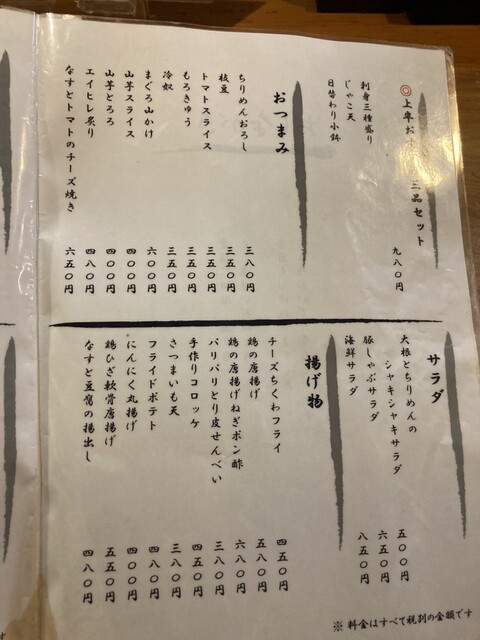 ◎上牟お 三品セット 九八〇円
刺身三種盛り
じゃこ天
日替わり小鉢
おつまみ
ちりめんおろし 三八〇円
枝豆 三五〇円
トマトスライス 三五〇円
もろきゅう 三五〇円
冷奴 三五〇円
まぐろ山かけ 六〇〇円
山芋スライス 四〇〇円
山芋とろろ 四〇〇円
エイヒレ炙り 四八〇円
なすとトマトのチーズ焼き 六五〇円
サラダ
大根とちりめんの
シャキシャキサラダ 五〇〇円
豚しゃぶサラダ 六五〇円
海鮮サラダ 八五〇円
揚げ物
チーズちくわフライ 四五〇円
鶏の唐揚げ 五八〇円
鶏の唐揚げねぎポン酢 六八〇円
パリパリとり皮せんべい 三八〇円
手作りコロッケ 四五〇円
さつまいも天 三八〇円
フライドポテト 四八〇円
にんにく丸揚げ 四〇〇円
鶏ひざ軟骨唐揚げ 五五〇円
なすと豆腐の揚出し 四八〇円
※ 料金はすべて税別の金額です